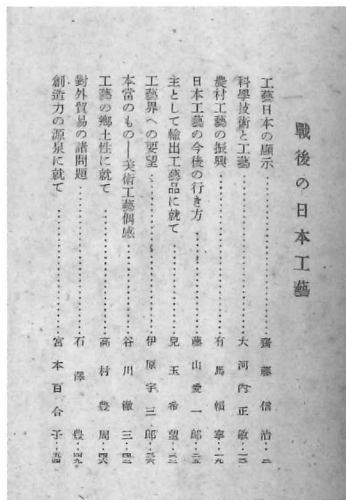 戰後の日本工藝
工藝日本の顯示…………齋藤信治…二
科學技術と工藝…………大河內正敏…一三
農村工藝の振興…………有馬賴寧…一九
日本工藝の今後の行き方…………藤山愛一郎…二五
主として輸出工藝品に就て…………兒玉希望…三一
工藝界への要望…………伊原宇三郎…三六
本當のもの——美術工藝偶感…………谷川徹三…四二
工藝の鄕土性に就て…………高村豐周…四六
對外貿易の諸問題…………石澤豐…四九
創造力の源泉に就て…………宮本百合子…五四